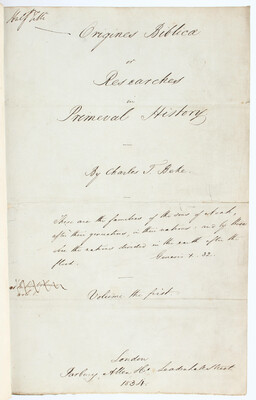 Half Title
Origines Biblicæ
or
Researches
in
Primeval History
By Charles T. Beke.
These are the families of the sons of Noah,
after their generations, in their nations: and by these
were the nations divided in the earth after the
flood.
Genesis X. 32.
Volume the first.
London
Parbury Allen & Co. Leadenhall Street
1834.